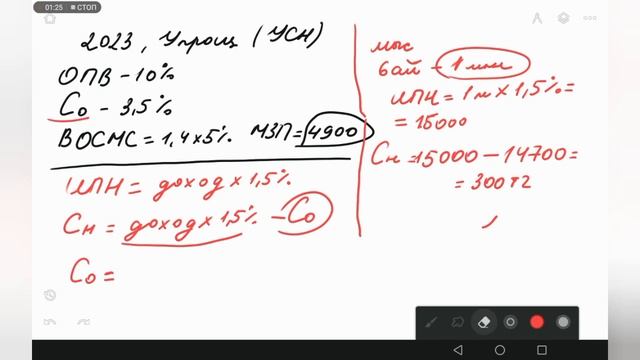 01:25 СТОП
2023, Упрощ (УСН)
ОПВ - 10%
Со - 3,5%
ВОСМС = 1,4 x 5% МЗП = 4900
ИПН = доход x 1,5%
Сн = доход x 1,5% - Со
Со =
мыс
6 ай - 1 млн
ИПН = 1 м x 1,5% =
= 15000
Сн = 15000 - 14700 =
= 300 тг